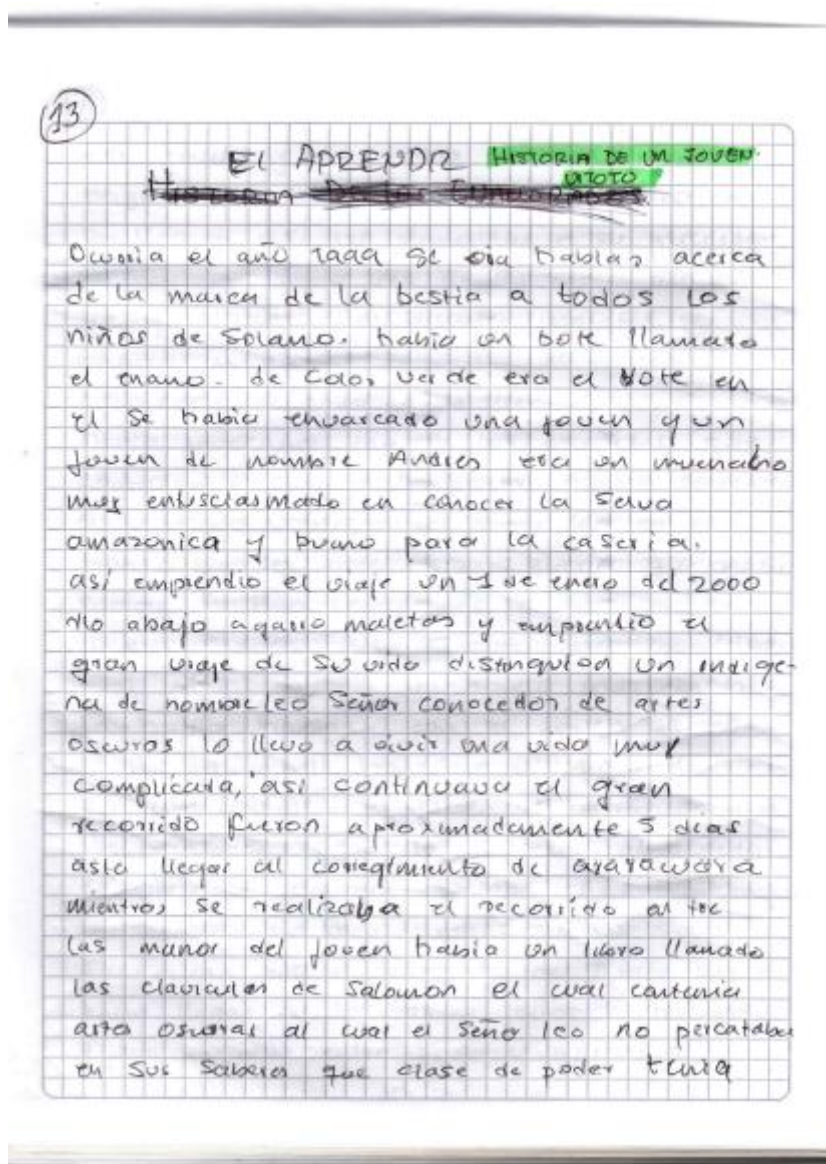 13
El APRENDR HISTORIA DE UN JOVEN
UITOTO
Ocurria el año 1999 se oia hablar acerca
de la marca de la bestia a todos los
niños de Solano. habia un bote llamado
el enano. de color verde era el bote en
el se habia envarcado una joven y un
joven de nombre Andres era un muchacho
muy entusciasmado en conocer la selva
amazonica y bueno para la caseria.
así emprendio el viaje un 1 de enero del 2000
rio abajo agarro maletas y emprendio el
gran viaje de su vida distinguion un indige-
na de nombre leo Señor conocedor de artes
oscuros lo llevo a vivir una vida muy
complicada, asi continuava el gran
recorrido fueron aproximadamente 5 dias
asta llegar al corregimiento de araracuara
mientras se realizaba el recorrido
las manos del joven habia un libro llamado
las claviculas de Salomon el cual contenia
artes oscuras al cual el Señor leo no percataba
en sus saberes que clase de poder tenia